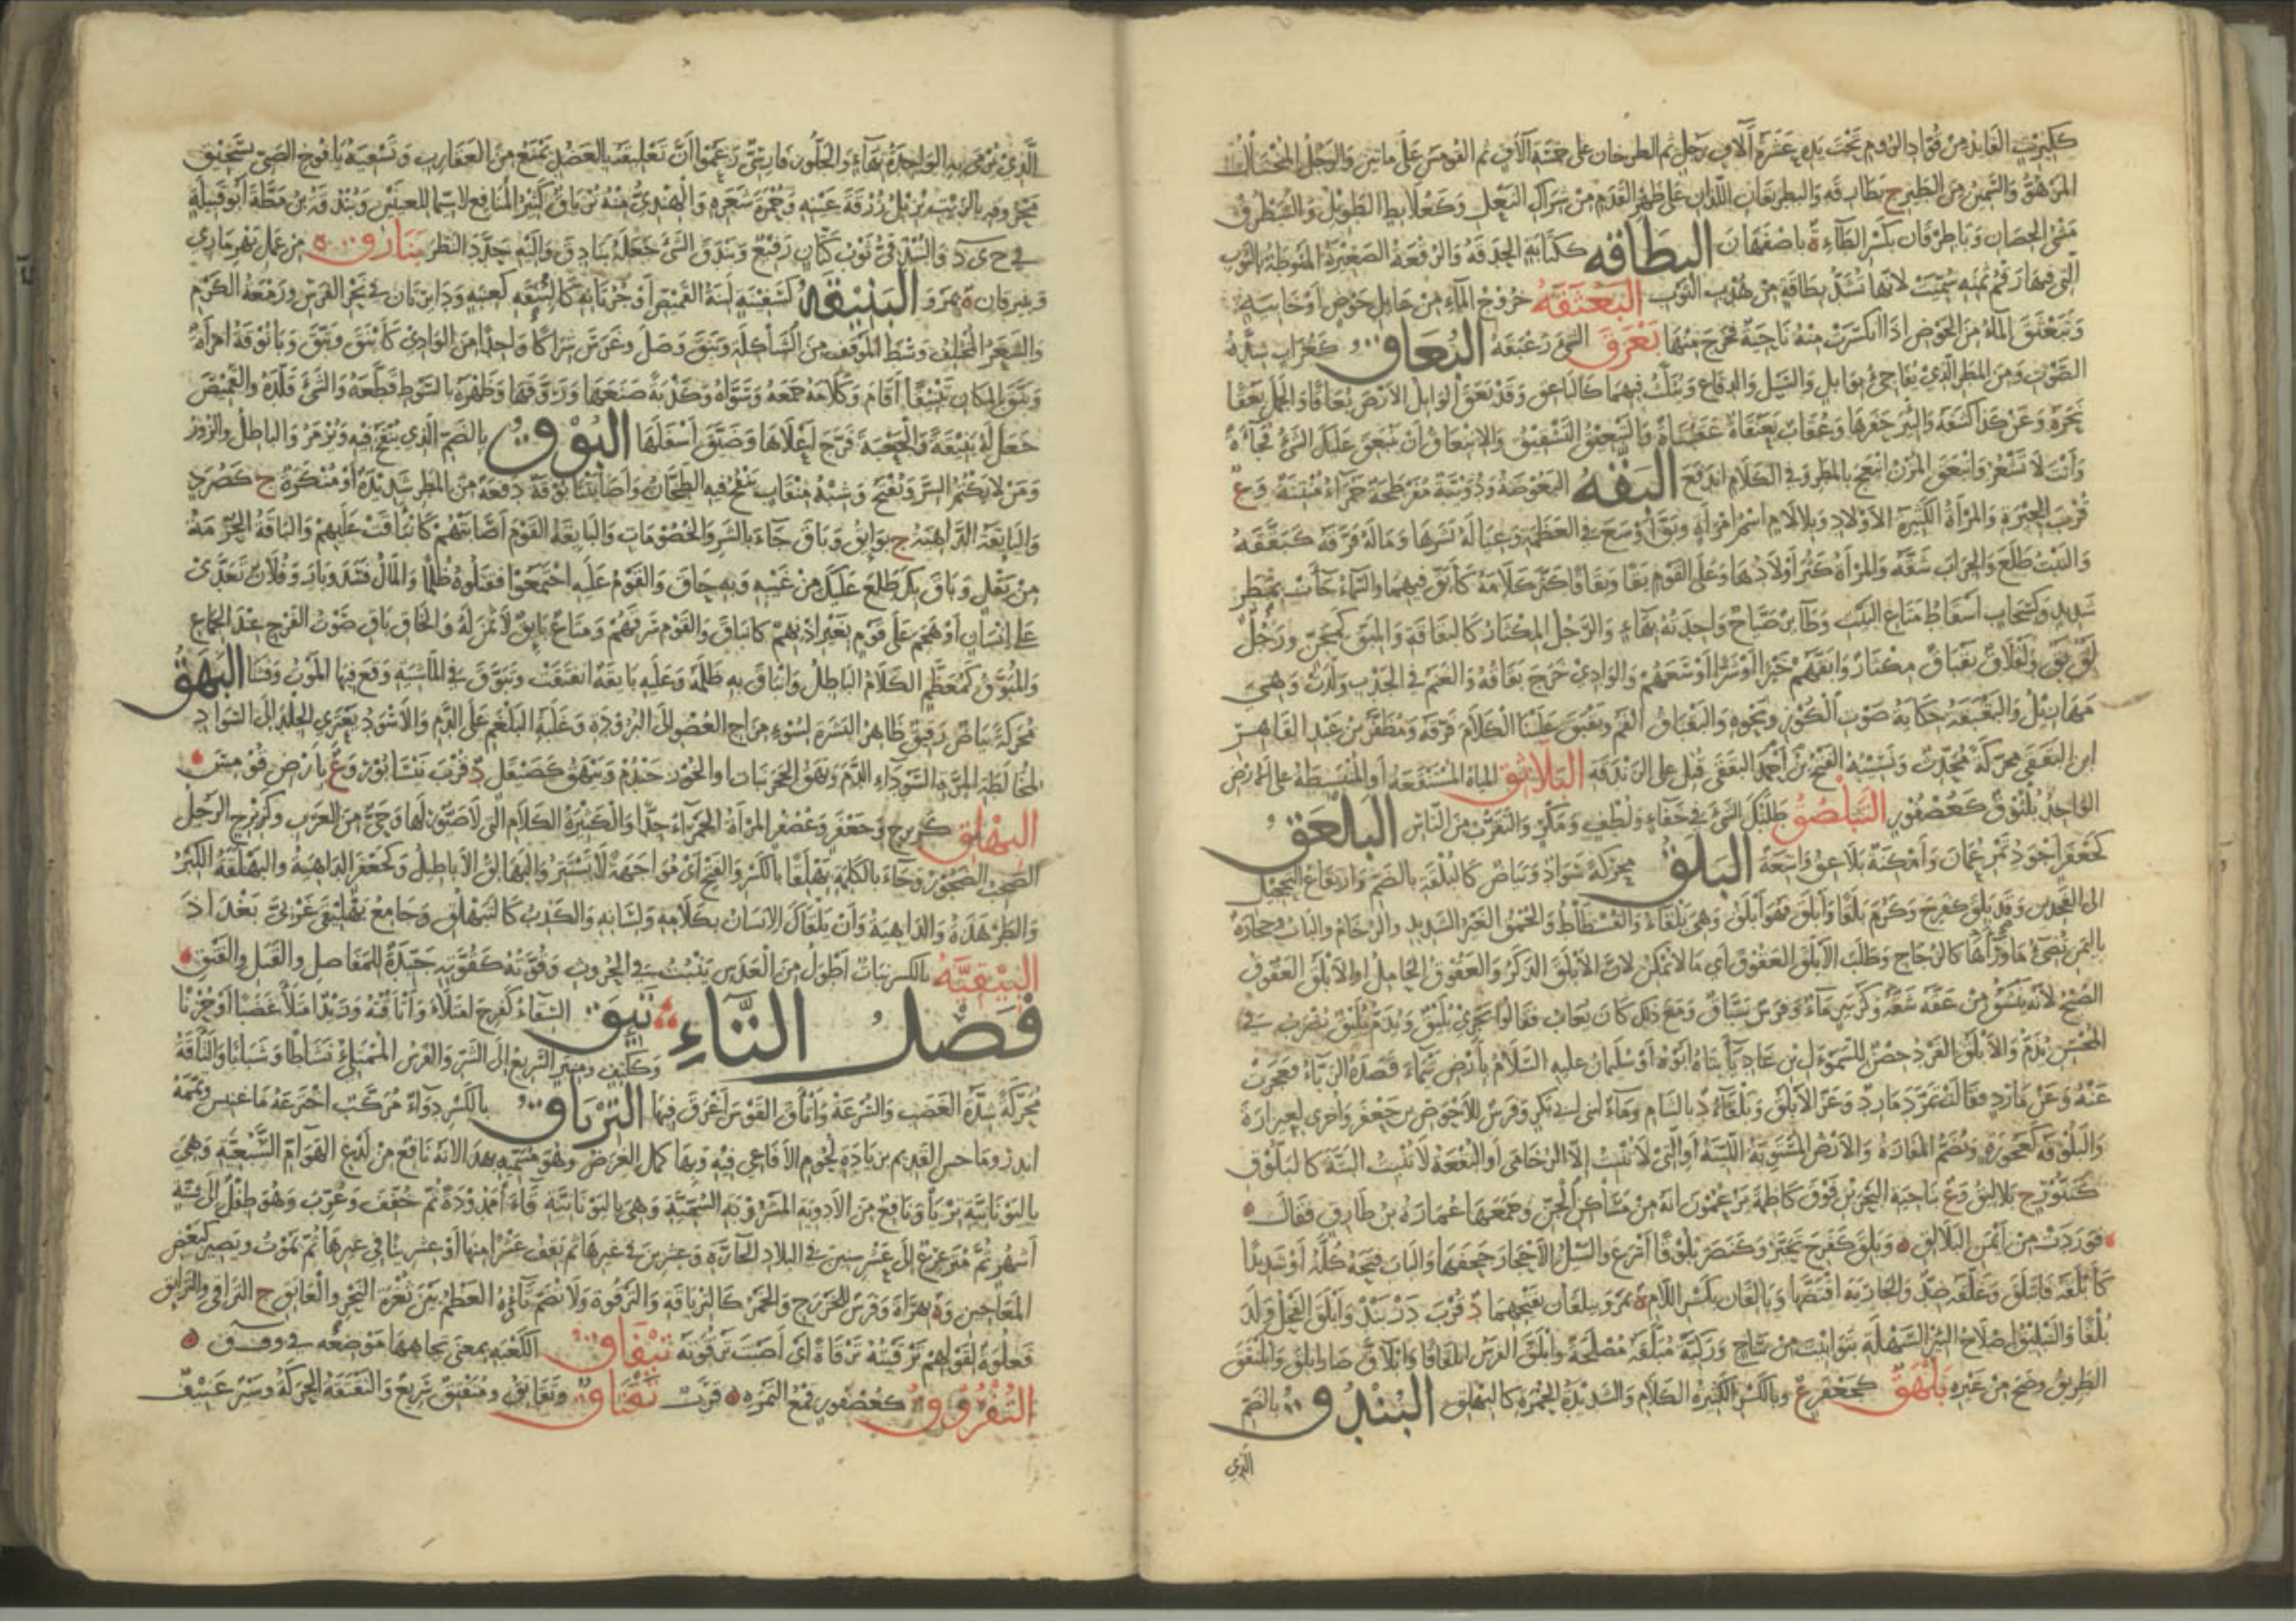 كَلِبْرِيتٍ القَائِدُ مِنْ قُوَّادِ الرُّومِ تَحْتَ يَدِهِ عَشَرَةُ آلَافِ رَجُلٍ ثُمَّ الطَّرْخَانُ عَلَى خَمْسَةِ آلَافٍ ثُمَّ القُومَسُ عَلَى مِائَتَيْنِ وَالرَّجُلُ المُخْتَالُ
المَزْهُوُّ وَالسَّمِينُ مِنَ الطَّيْرِ ج بَطَارِقَة وَالبِطْرِيقَانِ اللَّذَانِ عَلَى ظَهْرِ القَدَمِ مِنْ شِرَاكِ النَّعْلِ وَكَعُلَابِطٍ الطَّوِيلُ
بِكَسْرِ الطَّاءِ ة بِأَصْفَهَانَ البِطَاقَة كَكِتَابَةٍ الحَدَقَةُ وَالرُّقْعَةُ الصَّغِيرَةُ المَنُوطَةُ بِالثَّوْبِ
الَّتِي فِيهَا رَقْمُ ثَمَنِهِ سُمِّيَتْ لِأَنَّهَا تُشَدُّ بِطَاقَةٍ مِنْ هُدْبِ الثَّوْبِ البَعْثَقَةُ خُرُوجُ المَاءِ مِنْ غَائِلِ حَوْضٍ أَوْ خَابِيَةٍ
وَتَبَعْثَقَ المَاءُ مِنَ الحَوْضِ إِذَا انْكَسَرَتْ مِنْهُ نَاحِيَةٌ فَخَرَجَ مِنْهَا بَعْزَقَ الشَّيْءَ زَعْبَقَهُ البُعَاقُ كَغُرَابٍ شِدَّةُ
الصَّوْتِ وَمِنَ المَطَرِ الَّذِي يُفَاجِئُ بِوَابِلٍ وَالسَّيْلُ الدُّفَاعُ وَيُثَلَّثُ فِيهِمَا كَالبَاعِقِ وَقَدْ بَعَقَ الوَابِلُ الأَرْضَ بُعَاقًا وَالجَمَلَ بَعْقًا
نَحَرَهُ وَعَنْ كَذَا كَشَفَهُ وَالبِئْرَ حَفَرَهَا وَعُقَابٌ بَعَنْقَاةٌ عَقَنْبَاةٌ وَالتَّبْعِيقُ التَّشْقِيقُ وَالِانْبِعَاقُ أَنْ يَنْبَعِقَ عَلَيْكَ الشَّيْءُ فَجْأَةً
وَأَنْتَ لَا تَشْعُرُ وَانْبَعَقَ المُزْنُ انْبَعَجَ بِالمَطَرِ وَفِي الكَلَامِ انْدَفَعَ البَقَّةُ البَعُوضَةُ وَدُوَيْبَّةٌ مُفَرْطَحَةٌ حَمْرَاءُ مُنْتِنَةٌ وَع
قُرْبَ الحِيرَةِ وَالمَرْأَةُ الكَثِيرَةُ الأَوْلَادِ وَبِلَا لَامٍ اسْمُ امْرَأَةٍ وَبَقَّ أَوْسَعَ فِي العَطِيَّةِ وَعِيَالَهُ نَشَرَهَا وَمَالَهُ فَرَّقَهُ كَبَقَّقَهُ
وَالنَّبْتُ طَلَعَ وَالجِرَابَ شَقَّهُ وَالمَرْأَةُ كَثُرَ أَوْلَادُهَا وَعَلَى القَوْمِ بَقًّا وَبَقَاقًا كَثُرَ كَلَامُهُ كَأَبَقَّ فِيهِمَا وَالسَّمَاءُ جَاءَتْ بِمَطَرٍ
شَدِيدٍ وَكَسَحَابٍ أَسْقَاطُ مَتَاعِ البَيْتِ وَطَائِرٌ صَيَّاحٌ وَاحِدَتُهُ بِهَاءٍ وَالرَّجُلُ المِكْثَارُ كَالبَقَاقَةِ وَالمِبَقِّ كَمِجَنٍّ وَرَجُلٌ
لَقٌّ بَقٌّ وَلَقْلَاقٌ بَقْبَاقٌ مِكْثَارٌ وَأَبَقَّهُمْ خَيْرًا أَوْ شَرًّا أَوْسَعَهُمْ وَالوَادِي خَرَجَ بَقَاقُهُ وَالغَنَمُ فِي الجَدْبِ وَلَدَتْ وَهِيَ
مَهَازِيلُ وَالبَقْبَقَةُ حِكَايَةُ صَوْتِ الكُوزِ وَنَحْوِهِ وَالبَقْبَاقُ الفَمُ وَبَقْبَقَ عَلَيْنَا الكَلَامَ فَرَّقَهُ وَمُظَفَّرُ بْنُ عَبْدِ القَاهِرِ
ابْنِ البَقَقِيِّ مُحَرَّكَةً مُحَدِّثٌ وَنَسِيبُهُ الفَتْحُ بْنُ أَحْمَدَ البَقَقِيُّ قُتِلَ عَلَى الزَّنْدَقَةِ البَلَاثِقُ المِيَاهُ المُسْتَنْقَعَةُ أَوِ المُنْبَسِطَةُ عَلَى الأَرْضِ
الوَاحِدُ بُلْثُوقٌ كَعُصْفُورٍ التَّبَلْصُقُ طَلَبُكَ الشَّيْءَ فِي خَفَاءٍ وَلُطْفٍ وَمَكْرٍ وَالتَّقَرُّبُ مِنَ النَّاسِ البَلْعَقُ
كَجَعْفَرٍ أَجْوَدُ تَمْرِ عُمَانَ وَأَمْكِنَةٌ بَلَاعِقُ وَاسِعَةٌ البَلَقُ مُحَرَّكَةً سَوَادٌ وَبَيَاضٌ كَالبُلْقَةِ بِالضَّمِّ وَارْتِفَاعُ التَّحْجِيلِ
إِلَى الفَخِذَيْنِ وَقَدْ بَلِقَ كَفَرِحَ وَكَرُمَ بَلَقًا وَابْلَقَّ فَهُوَ أَبْلَقُ وَهِيَ بَلْقَاءُ وَالفُسْطَاطُ وَالحُمْقُ الغَيْرُ الشَّدِيدِ وَالرُّخَامُ وَالبَابُ وَحِجَارَةٌ
بِاليَمَنِ تُضِيءُ مَا وَرَاءَهَا كَالزُّجَاجِ وَطَلَبَ الأَبْلَقَ العَقُوقَ أَيْ مَا لَا يُمْكِنُ لِأَنَّ الأَبْلَقَ الذَّكَرُ وَالعَقُوقُ الحَامِلُ أَوِ الأَبْلَقُ العَقُوقُ
الصُّبْحُ لِأَنَّهُ يَنْشَقُّ مِنْ عَقَّهُ شَقَّهُ وَكَزُبَيْرٍ مَاءٌ وَفَرَسٌ سَبَّاقٌ وَمَعَ ذَلِكَ كَانَ يُعَابُ فَقَالُوا يَجْرِي بُلَيْقٌ وَيُذَمُّ بُلَيْقٌ يُضْرَبُ فِي
المُحْسِنِ يُذَمُّ وَالأَبْلَقُ الفَرْدُ حِصْنٌ لِلسَّمَوْأَلِ بْنِ عَادِيَاءَ بَنَاهُ أَبُوهُ أَوْ سُلَيْمَانُ عَلَيْهِ السَّلَامُ بِأَرْضِ تَيْمَاءَ قَصَدَتْهُ الزَّبَّاءُ فَعَجَزَتْ
عَنْهُ وَعَنْ مَارِدٍ فَقَالَتْ تَمَرَّدَ مَارِدٌ وَعَزَّ الأَبْلَقُ وَبَلْقَاءُ د بِالشَّامِ وَمَاءٌ لِبَنِي أَبِي بَكْرٍ وَفَرَسٌ لِلْأَحْوَصِ بْنِ جَعْفَرٍ وَأُخْرَى لِعِيزَارَةَ
وَالبَلُّوقَةُ كَعَجُورَةٍ وَتُضَمُّ المَفَازَةُ وَالأَرْضُ المُسْتَوِيَةُ اللَّيِّنَةُ أَوِ الَّتِي لَا تُنْبِتُ إِلَّا الرُّخَامَى أَوِ البُقْعَةُ لَا تُنْبِتُ البَتَّةَ كَالبَلُّوقِ
كَتَنُّورٍ ج بَلَالِيقُ وَع بِنَاحِيَةِ البَحْرَيْنِ فَوْقَ كَاظِمَةَ يَزْعُمُونَ أَنَّهُ مِنْ مَسَاكِنِ الجِنِّ وَجَمَعَهَا عُمَارَةُ بْنُ طَارِقٍ فَقَالَ
فَوَرَدَتْ مِنْ أَيْمَنِ البَلَالِقِ وَبَلِقَ كَفَرِحَ تَحَيَّرَ وَكَنَصَرَ بُلُوقًا أَسْرَعَ وَالسَّيْلُ الأَحْجَارَ جَحَفَهَا وَالبَابَ فَتَحَهُ كُلَّهُ أَوْ شَدِيدًا
كَأَبْلَقَهُ فَانْبَلَقَ وَغَلَّقَهُ ضِدٌّ وَالجَارِيَةَ افْتَضَّهَا وَبَالِقَانُ بِكَسْرِ اللَّامِ ة بِمَرْوَ وَبَيْلَقَانُ بِفَتْحِهِمَا د قُرْبَ دَرْبَنْدَ وَأَبْلَقَ الفَحْلُ وَلَدَ
بُلْقًا وَالتَّبْلِيقُ إِصْلَاحُ البِئْرِ السَّهْلَةِ بِتَوَابِيتَ مِنْ سَاجٍ وَرَكِيَّةٌ مُبَلَّقَةٌ مُصْلَحَةٌ وَابْلَقَّ الفَرَسُ ابْلِقَاقًا وَابْلَاقَّ صَارَ أَبْلَقَ وَابْلَنْقَقَ
الطَّرِيقُ وَضَحَ مِنْ غَيْرِهِ بَلْهَقٌ كَجَعْفَرٍ ع وَبِالكَسْرِ الكَثِيرَةُ الكَلَامِ وَالشَّدِيدَةُ الحُمْرَةِ كَالبِهْلِقِ البُنْدُقُ بِالضَّمِّ
الَّذِي
الَّذِي يُرْمَى بِهِ الوَاحِدَةُ بِهَاءٍ وَالجِلَّوْزُ فَارِسِيٌّ زَعَمُوا أَنَّ تَعْلِيقَهُ بِالعَضُدِ يَمْنَعُ مِنَ العَقَارِبِ وَتَسْقِيَةُ يَافُوخِ الصَّبِيِّ بِسَحِيقِ
مَحْرُوقِهِ بِالزَّيْتِ يُزِيلُ زُرْقَةَ عَيْنِهِ وَحُمْرَةَ شَعَرِهِ وَالهِنْدِيُّ مِنْهُ تِرْيَاقٌ كَثِيرُ المَنَافِعِ لَا سِيَّمَا لِلْعَيْنَيْنِ وَبُنْدُقَةُ بْنُ مَظَّةَ أَبُو قَبِيلَةٍ
فِي ح د أ وَالبُنْدُقِيُّ ثَوْبُ كَتَّانٍ رَفِيعٌ وَبَنْدَقَ الشَّيْءَ جَعَلَهُ بَنَادِقَ وَإِلَيْهِ حَدَّدَ النَّظَرَ بَنَارَقُ ة مِنْ عَمَلِ نَهْرِ مَارِي
وَبِنِيرَقَانُ ة بِمَرْوَ البَنِيقَةُ كَسَفِينَةٍ لَبِنَةُ القَمِيصِ أَوْ جُرُبَّانُهُ كَالبِنَقَةِ كَعِنَبَةٍ وَدَائِرَتَانِ فِي نَحْرِ الفَرَسِ وَزَمَعَةُ الكَرْمِ
وَالشَّعَرُ المُخْتَلِفُ وَسْطَ المَوْقِفِ مِنَ الشَّاكِلَةِ وَبَنَقَ وَصَلَ وَغَرَسَ شِرَاكًا وَاحِدًا مِنَ الوَدِيِّ كَأَبْنَقَ وَبَنَّقَ وَبَانُوقَةُ امْرَأَةٌ
وَبَنَّقَ بِالمَكَانِ تَبْنِيقًا أَقَامَ وَكَلَامَهُ جَمَعَهُ وَسَوَّاهُ وَكَذْبَةً صَنَعَهَا وَزَوَّقَهَا وَظَهْرَهُ بِالسَّوْطِ قَطَّعَهُ وَالشَّيْءَ قَلَّدَهُ وَالقَمِيصَ
جَعَلَ لَهُ بَنِيقَةً وَالجَعْبَةَ فَرَّجَ أَعْلَاهَا وَضَيَّقَ أَسْفَلَهَا البُوقُ بِالضَّمِّ الَّذِي يُنْفَخُ فِيهِ وَيُزْمَرُ وَالبَاطِلُ وَالزُّورُ
وَمَنْ لَا يَكْتُمُ السِّرَّ وَيُفْتَحُ وَشِبْهُ مِنْقَابٍ يَنْفُخُ فِيهِ الطَّحَّانُ وَأَصَابَتْنَا بُوقَةٌ دُفْعَةٌ مِنَ المَطَرِ شَدِيدَةٌ أَوْ مُنْكَرَةٌ ج كَصُرَدٍ
وَالبَائِقَةُ الدَّاهِيَةُ ج بَوَائِقُ وَبَاقَ جَاءَ بِالشَّرِّ وَالخُصُومَاتِ وَالبَائِقَةُ القَوْمَ أَصَابَتْهُمْ كَانْبَاقَتْ عَلَيْهِمْ وَالبَاقَةُ الحُزْمَةُ
مِنْ بَقْلٍ وَبَاقَ بِكَ طَلَعَ عَلَيْكَ مِنْ غَيْبِهِ وَبِهِ حَاقَ وَالقَوْمُ عَلَيْهِ اجْتَمَعُوا فَقَتَلُوهُ ظُلْمًا وَالمَالُ فَسَدَ وَبَارَ وَفُلَانٌ تَعَدَّى
عَلَى إِنْسَانٍ أَوْ هَجَمَ عَلَى قَوْمٍ بِغَيْرِ إِذْنِهِمْ كَانْبَاقَ وَالقَوْمَ سَرَقَهُمْ وَمَتَاعٌ بَائِقٌ لَا ثَمَنَ لَهُ وَالخَاقِ بَاقِ صَوْتُ الفَرْجِ عِنْدَ الجِمَاعِ
وَالمُبَوَّقُ كَمُعَظَّمٍ الكَلَامُ البَاطِلُ وَانْبَاقَ بِهِ ظَلَمَهُ وَعَلَيْهِ بَائِقَةٌ انْفَتَقَتْ وَتَبَوَّقَ فِي المَاشِيَةِ وَقَعَ فِيهَا المَوْتُ وَفَشَا البَهَقُ
مُحَرَّكَةً بَيَاضٌ رَقِيقٌ ظَاهِرَ البَشَرَةِ لِسُوءِ مِزَاجِ العُضْوِ إِلَى البُرُودَةِ وَغَلَبَةِ البَلْغَمِ عَلَى الدَّمِ وَالأَسْوَدُ يُغَيِّرُ الجِلْدَ إِلَى السَّوَادِ
لِمُخَالَطَةِ المِرَّةِ السَّوْدَاءِ الدَّمَ وَبَهَقُ الحَجَرِ نَبَاتٌ وَبَيْهَقُ كَصَيْقَلٍ د قُرْبَ نَيْسَابُورَ وَع بِأَرْضِ قُومِسَ
البِهْلِقُ كَزِبْرِجٍ وَجَعْفَرٍ وَعُصْفُرٍ المَرْأَةُ الحَمْرَاءُ جِدًّا وَالكَثِيرَةُ الكَلَامِ الَّتِي لَا صَيُّورَ لَهَا وَحَيٌّ مِنَ العَرَبِ وَكَزِبْرِجٍ الرَّجُلُ
الصَّخِبُ الضَّجُورُ وَجَاءَ بِالكَلِمَةِ بَهْلَقًا بِالكَسْرِ وَالفَتْحِ أَيْ مُوَاجَهَةً لَا تَسَتُّرَ وَالبَهَالِقُ الأَبَاطِيلُ وَكَجَعْفَرٍ الدَّاهِيَةُ وَالبَهْلَقَةُ الكِبْرُ
وَالطَّرْمَذَةُ وَالدَّاهِيَةُ وَأَنْ يَلْقَاكَ الإِنْسَانُ بِكَلَامِهِ وَلِسَانِهِ وَالكَذِبُ كَالتَّبَهْلُقِ وَجَامِعُ بَهْلِيقَا غَرْبِيَّ بَغْدَادَ
البِيقِيَّةُ بِالكَسْرِ نَبَاتٌ أَطْوَلُ مِنَ العَدَسِ يَنْبُتُ فِي الحُرُوثِ وَقُوَّتُهُ كَقُوَّتِهِ جَيِّدَةٌ لِلْمَفَاصِلِ وَالقَبَلِ وَالفَتْقِ
فَصْلُ التَّاءِ تَئِقَ السِّقَاءُ كَفَرِحَ امْتَلَأَ وَأَتْأَقْتُهُ وَزَيْدٌ امْتَلَأَ غَضَبًا أَوْ حُزْنًا
وَكَكَتِفٍ وَمِنْبَرٍ السَّرِيعُ إِلَى الشَّرِّ وَالفَرَسُ المُمْتَلِئُ نَشَاطًا وَشَبَابًا وَالتَّأَقَةُ
مُحَرَّكَةً شِدَّةُ الغَضَبِ وَالسُّرْعَةُ وَأَتْأَقَ القَوْسَ أَغْرَقَ فِيهَا التِّرْيَاقُ بِالكَسْرِ دَوَاءٌ مُرَكَّبٌ اخْتَرَعَهُ مَاغْنِيسُ وَتَمَّمَهُ
انْدُرُومَاخِسُ القَدِيمُ بِزِيَادَةِ لُحُومِ الأَفَاعِي فِيهِ وَبِهَا كَمُلَ الغَرَضُ وَهُوَ مُسَمِّيهِ بِهَذَا لِأَنَّهُ نَافِعٌ مِنْ لَدْغِ الهَوَامِّ السَّبُعِيَّةِ وَهِيَ
بِاليُونَانِيَّةِ تِرْيَاءُ وَنَافِعٌ مِنَ الأَدْوِيَةِ المَشْرُوبَةِ السُّمِّيَّةِ وَهِيَ بِاليُونَانِيَّةِ قَاءَ مَمْدُودَةً ثُمَّ خُفِّفَ وَعُرِّبَ وَهُوَ طِفْلٌ إِلَى سِتَّةِ
أَشْهُرٍ ثُمَّ مُتَرَعْرِعٌ إِلَى عَشْرِ سِنِينَ فِي البِلَادِ الحَارَّةِ وَعِشْرِينَ فِي غَيْرِهَا ثُمَّ يَقِفُ عَشْرًا مِنْهَا أَوْ عِشْرِينَ فِي غَيْرِهَا ثُمَّ يَمُوتُ وَيَصِيرُ كَبَعْضِ
المَعَاجِينِ وَة بِهَرَاةَ وَفَرَسٌ لِلْخَزْرَجِ وَالخَمْرُ كَالتِّرْيَاقَةِ وَالتَّرْقُوَةُ وَلَا تُضَمُّ تَاؤُهُ العَظْمُ بَيْنَ ثُغْرَةِ النَّحْرِ وَالعَاتِقِ ج التَّرَاقِي وَالتَّرَايِقُ
فَعْلُوَةٌ لِقَوْلِهِمْ تَرْقَيْتُهُ تَرْقَاةً أَيْ أَصَبْتُ تَرْقُوَتَهُ تِيفَاقُ الكَعْبَةِ بِمَعْنَى تِجَاهِهَا مَوْضِعُهُ فِي وف ق
التُّفْرُوقُ كَعُصْفُورٍ قِمَعُ التَّمْرَةِ